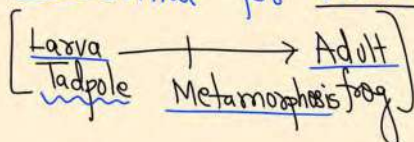 Larva → Adult
Tadpole Metamorphosis frog